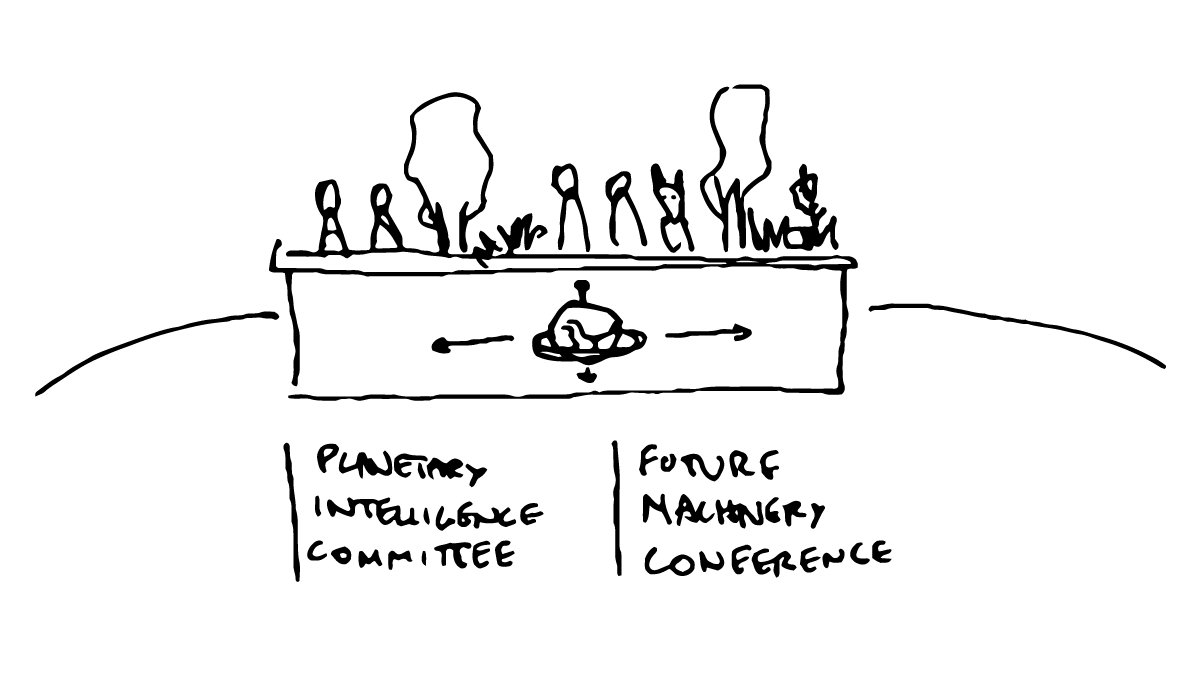 PLANETARY
INTELLIGENCE
COMMITTEE
FUTURE
MACHINERY
CONFERENCE